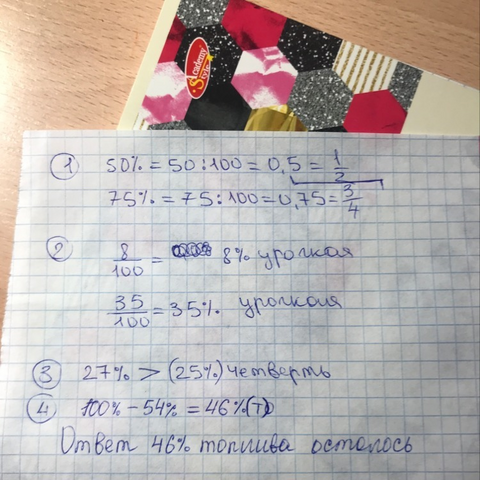 Academy
Style
1 50% = 50 : 100 = 0,5 = 1/2
75% = 75 : 100 = 0,75 = 3/4
2 8/100 = 8% урочкая
35/100 = 35% урочколя
3 27% > (25%) четверть
4 100% - 54% = 46% (т)
Ответ 46% топлива осталось